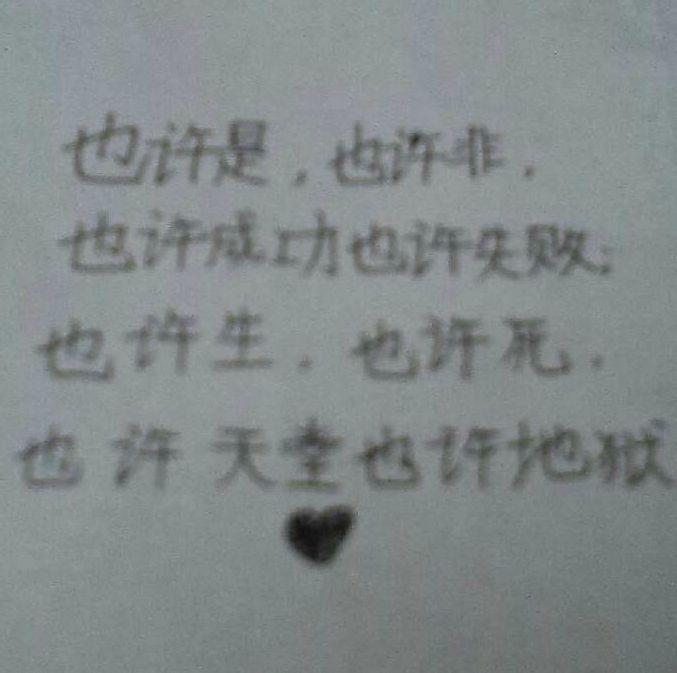 也许是，也许非，
也许成功也许失败；
也许生，也许死，
也许天堂也许地狱